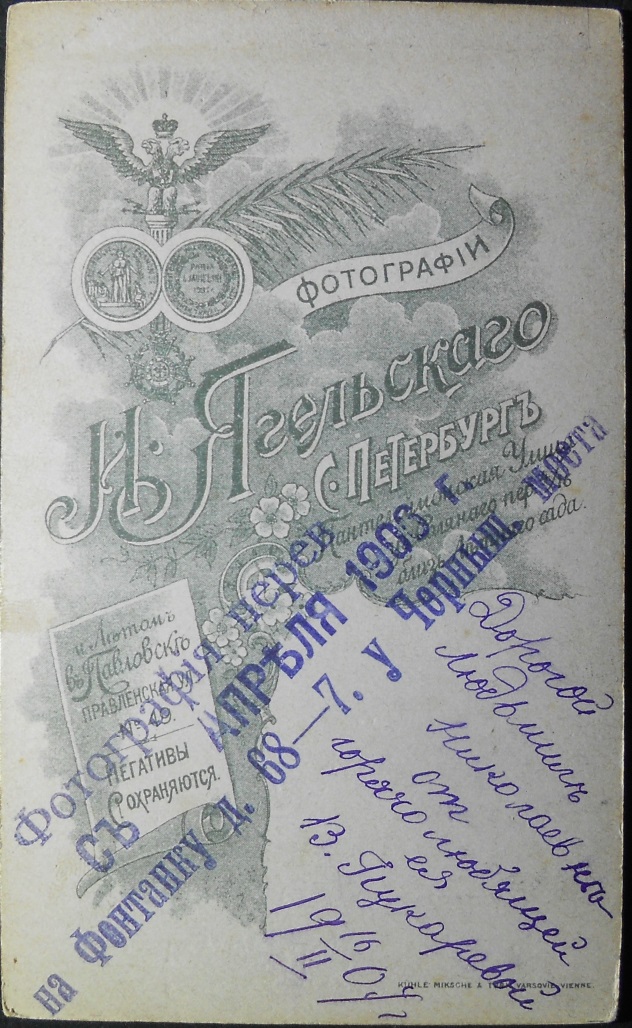 ФОТОГРАФІИ
Н. Ягельскаго
С. ПЕТЕРБУРГЪ
Пантелеймонская Улица
близь Лѣтняго сада.
и Лѣтомъ
въ Павловскѣ
ПРАВЛЕНСКАЯ УЛ.
№ 49.
НЕГАТИВЫ
СОХРАНЯЮТСЯ.
Фотографія перев
СЪ АПРѢЛЯ 1903 г.
на Фонтанку д. 68—7. у Черныш. моста
Дорогой
Людмилѣ
Николаевнѣ
от
горячо любящей
ея
В. Пукаревой
19 16/II 04
KÜHLE MIKSCHE & VARSOVIE VIENNE.